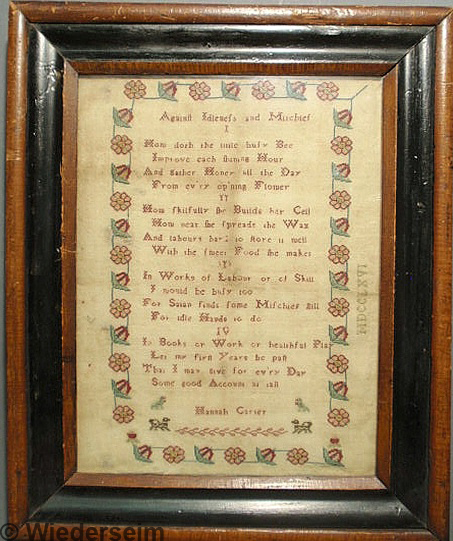 Againſt Idleneſs and Miſchief
I
How doth the little buſy Bee
Improve each ſhining Hour
And gather Honey all the Day
From ev'ry op'ning Flower
II
How ſkilfully ſhe Builds her Cell
How neat ſhe ſpreads the Wax
And labours hard to ſtore it well
With the ſweet Food ſhe makes
III
In Works of Labour or of Skill
I would be buſy too
For Satan finds ſome Miſchief ſtill
For idle Hands to do
IV
In Books or Work or healthful Play
Let my firſt Years be paſt
That I may give for ev'ry Day
Some good Account at laſt
Hannah Carter
© Wiederseim